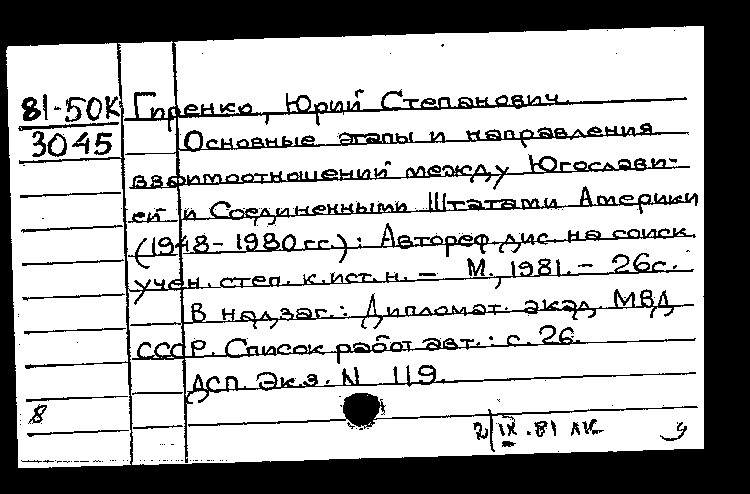 81-50К Гиренко, Юрий Степанович.
3045 Основные этапы и направления
взаимоотношений между Югослави-
ей и Соединенными Штатами Америки
(1948-1980 гг.): Автореф. дис. на соиск.
учен. степ. к.ист.н. - М., 1981. - 26с.
В надзаг.: Дипломат. акад. МВД
СССР. Список работ авт.: с. 26.
ДСП. Экз. N 119.
8
2/IX.81 ЛК